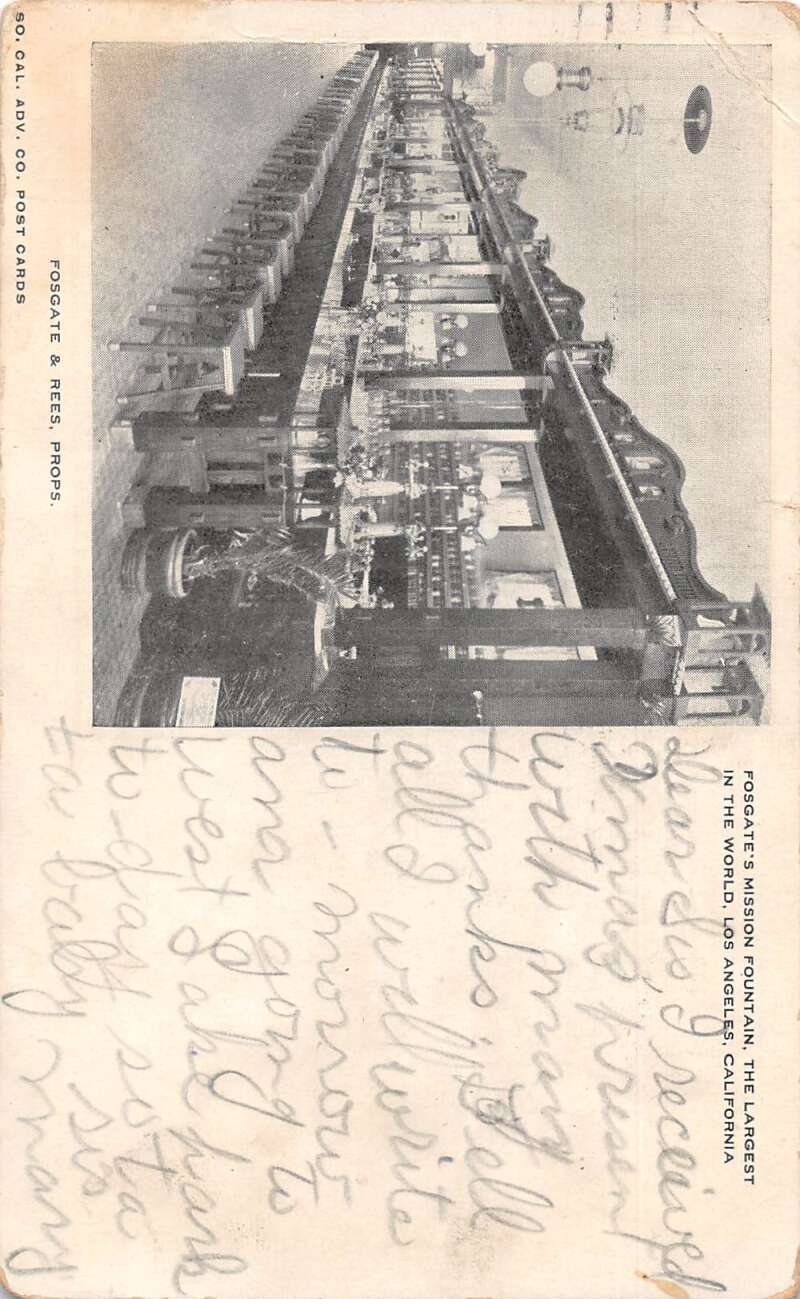 FOSGATE'S MISSION FOUNTAIN, THE LARGEST
IN THE WORLD, LOS ANGELES, CALIFORNIA
Dear Sis, I received
Xmas, presen
with many
thanks, Tell
all I will write
to-morrow
and gong to
west Lake park
to-day so ta
ta baby sis
mary
FOSGATE & REES, PROPS.
SO. CAL. ADV. CO. POST CARDS